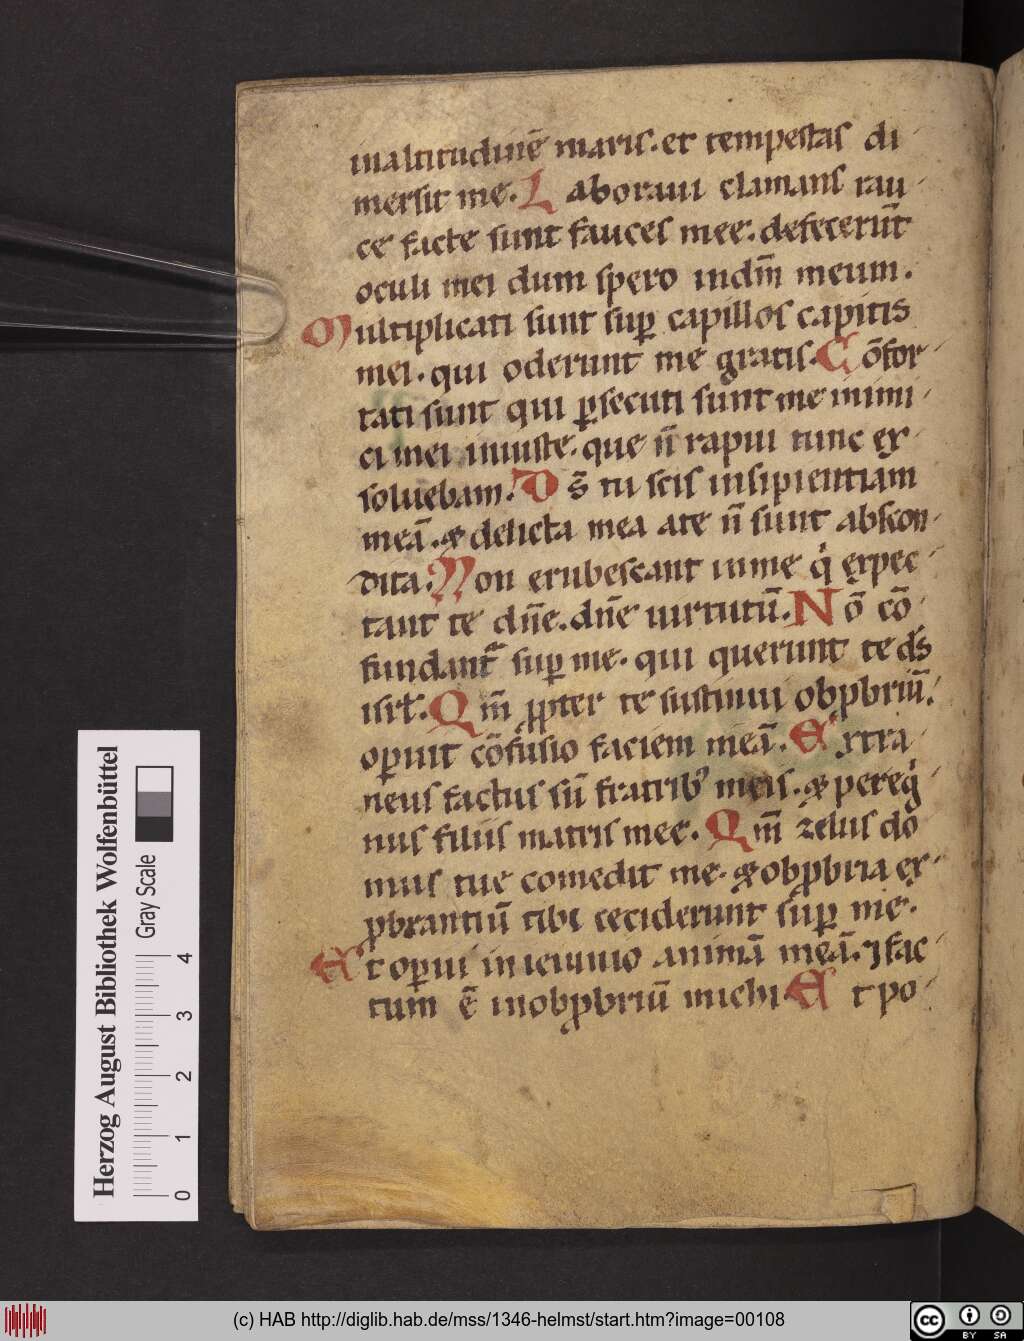 inaltitudinē maris. et tempestas di
mersit me. Laboraui clamans rau
ce facte sunt fauces mee. defecerūt
oculi mei dum spero indm̄ meum.
Multiplicati sunt suꝑ capillos capitis
mei. qui oderunt me gratis. Cōfor
tati sunt qui ꝑsecuti sunt me inimi
ci mei iniuste. que n̄ rapui tunc ex
soluebam. Ds̄ tu scis insipientiam
meā. & delicta mea ate n̄ sunt abscon
dita. Non erubescant inme q̇ expec
tant te dn̄e. dn̄e uirtutū. Nō cō
fundant᷑ suꝑ me. qui querunt te ds̄
isrł. Qm̄ ꝓpter te sustinui obꝓbriū.
oꝑuit cōfusio faciem meā. Extra
neus factus sū fratrib; meis. & peregͥ
nus filiis matris mee. Qm̄ zelus do
mus tue comedit me. & obꝓbria ex
ꝓbrantiū tibi ceciderunt suꝑ me.
Et oꝑui in ieiunio animā meā. ⁊ fac
tum ē inobꝓbriū michi. Et po
Herzog August Bibliothek Wolfenbüttel
Gray Scale
0 1 2 3 4
(c) HAB http://diglib.hab.de/mss/1346-helmst/start.htm?image=00108
cc BY SA